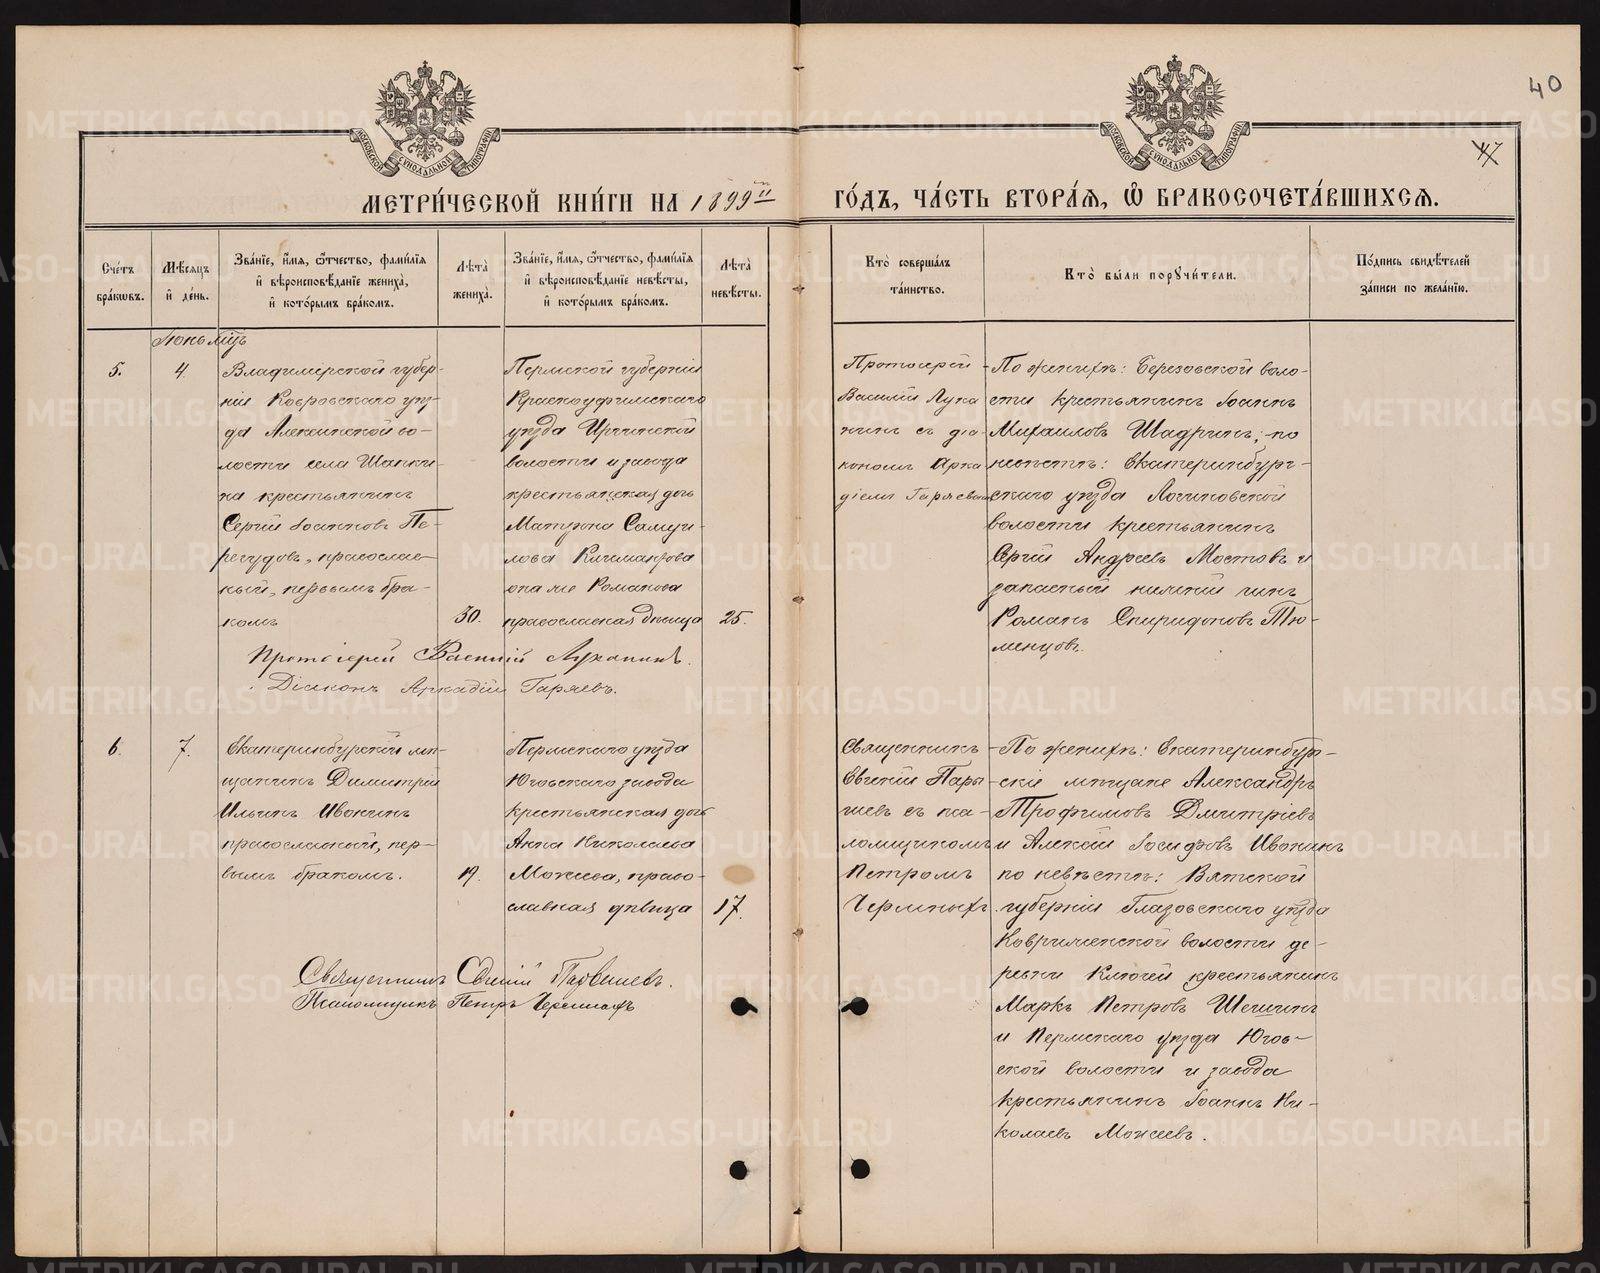 40
МЕТРИ́ЧЕСКОЙ КНИ́ГИ НА 1899 ГО́ДЪ, ЧА́СТЬ ВТОРА́Я, Ѽ БРАКОСОЧЕТА́ВШИХСЯ.
Сче́тъ бра́кѡвъ.
Мѣ́сяцъ и де́нь.
Зва́нїе, и́мя, ѻ́тчество, фами́лїя и вѣроисповѣ́данїе жениха̀, и кото́рымъ бра́комъ.
Лѣ́та жениха̀.
Зва́нїе, и́мя, ѻ́тчество, фами́лїя и вѣроисповѣ́данїе невѣ́сты, и кото́рымъ бра́комъ.
Лѣ́та невѣ́сты.
Кто̀ соверша́лъ та́инство.
Кто̀ бы́ли порꙋчи́тели.
По́дпись свидѣ́телей за́писи по жела́нїю.
Іюнь мцъ
5.
4.
Владимірской губер-
ніи Ковровскаго уѣз-
да Алексинской во-
лости села Шапки-
на крестьянинъ
Сергій Іоанновъ Пе-
регудовъ, православ-
ный, первымъ бра-
комъ
30.
Пермской губерніи
Красноуфимскаго
уѣзда Иргинской
волости и завода
крестьянская дочь
Матрона Самуи-
лова
она же Романова
православная дѣвица
25.
Протоіерей Василій Луканинъ.
Діаконъ Аркадій Гаряевъ.
Протоіерей
Василій Лука
нинъ съ діа-
кономъ Арка
діемъ Гаряевымъ
По женихѣ: Березовской воло-
сти крестьянинъ Іоаннъ
Михаиловъ Шадринъ; по
невѣстѣ: Екатеринбург-
скаго уѣзда Логиновской
волости крестьянинъ
Сергій Андреевъ Мостовъ и
запасный нижній чинъ
Романъ Спиридоновъ Тю-
менцовъ.
6.
7.
Екатеринбургскій мѣ-
щанинъ Димитрій
Ильинъ Ивонинъ
православный, пер-
вымъ бракомъ.
19.
Пермскаго уѣзда
Юговскаго завода
крестьянская дочь
Анна Николаева
Можеева, право-
славная дѣвица
17.
Священникъ Евгеній
Псаломщикъ Петръ Черемныхъ
Священникъ
Евгеній
съ пса-
ломщикомъ
Петромъ
По женихѣ: Екатеринбург-
скіе мѣщане Александръ
Трофимовъ Дмитріевъ
и Алексій Іосифовъ Ивонинъ
по невѣстѣ: Вятской
губерніи Глазовскаго уѣзда
волости де-
ревни Ключей крестьянинъ
Маркъ Петровъ Шешинъ
и Пермскаго уѣзда Югов-
ской волости и завода
крестьянинъ Іоаннъ Ни-
колаевъ Можеевъ.
METRIKI.GASO-URAL.RU